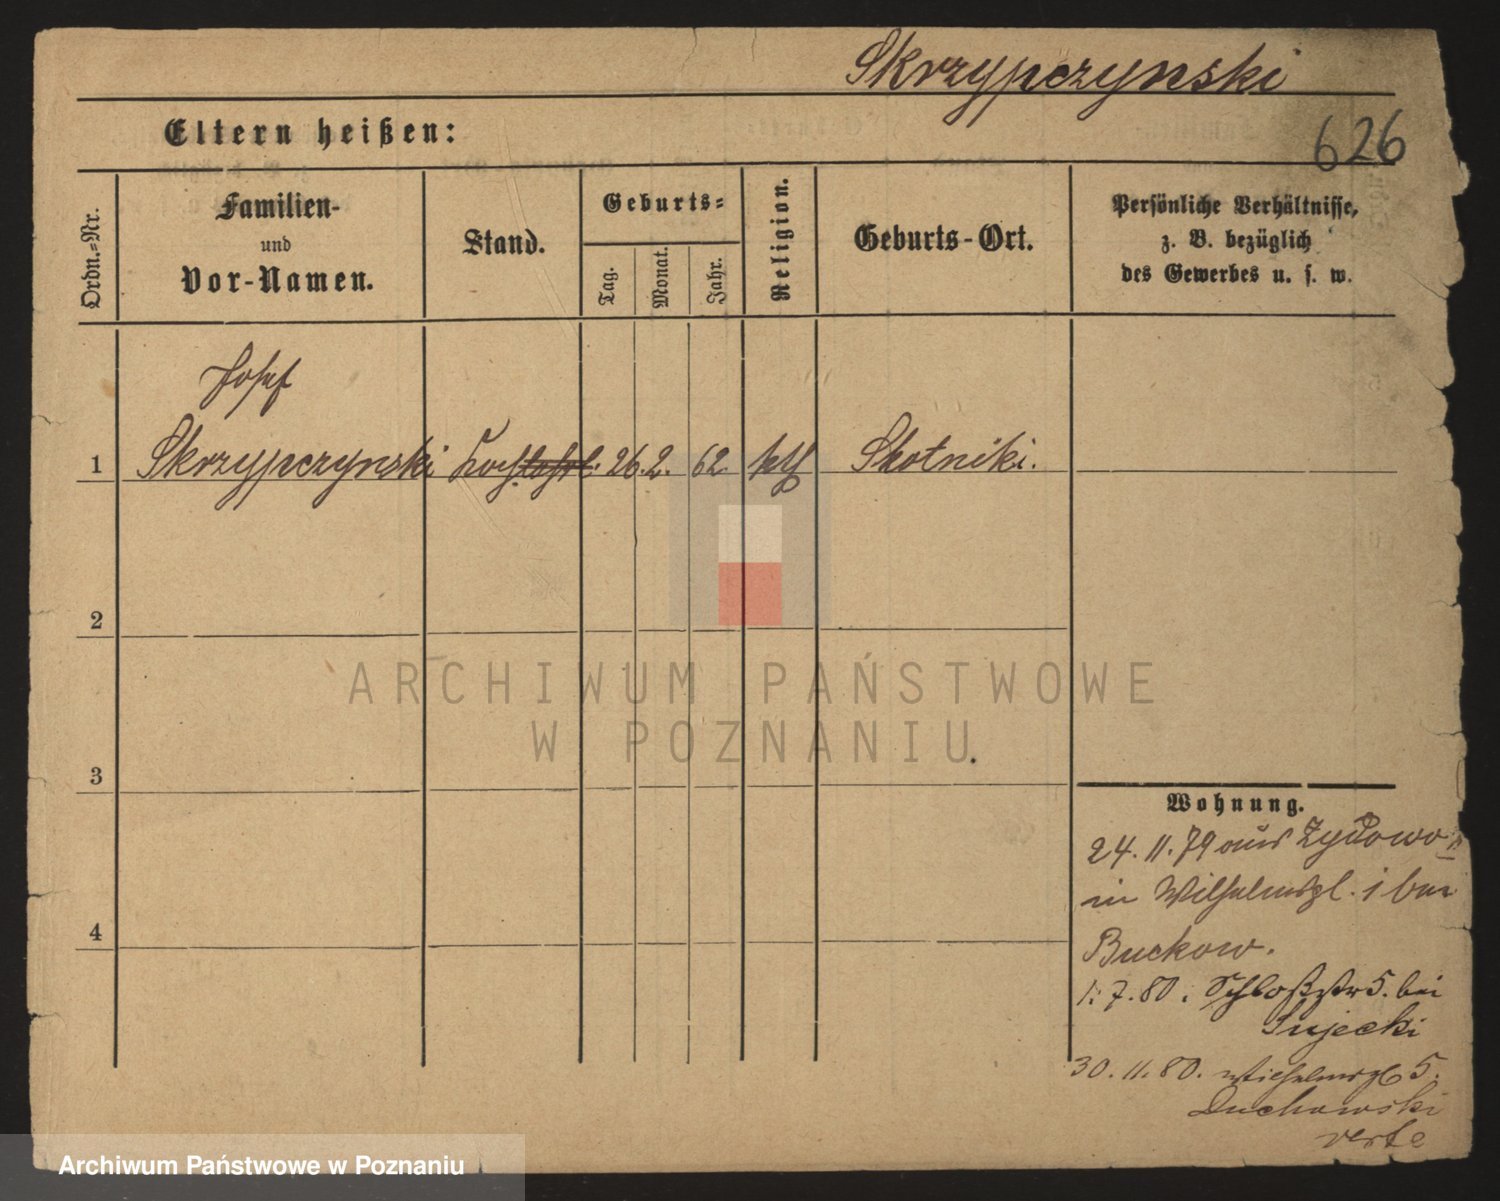 Skrzypczynski
626
Eltern heißen:
Ordn.-Nr.
Familien-
und
Vor-Namen.
Stand.
Geburts-
Tag.
Monat.
Jahr.
Religion.
Geburts-Ort.
Persönliche Verhältnisse,
z. B. bezüglich
des Gewerbes u. s. w.
Josef
1 Skrzypczynski Kochlehrl. 26. 2. 62 kth Skotniki.
2
3
4
ARCHIWUM PAŃSTWOWE
W POZNANIU
Wohnung.
24. 11. 79 aus Zydowo
in Wilhelmspl. 1 bei
Buckow.
1. 7. 80. Schloßstr 5. bei
Sujecki
30. 11. 80. Wilhelmspl 5.
Duchowski
verte
Archiwum Państwowe w Poznaniu